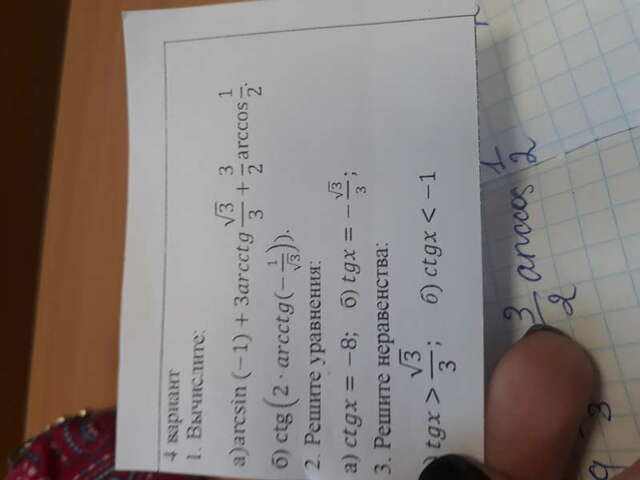 4 вариант
1. Вычислите:
а) arcsin (−1) + 3arcctg √3/3 + 3/2 arccos 1/2.
б) ctg(2 · arcctg(−1/√3)).
2. Решите уравнения:
а) ctgx = −8; б) tgx = −√3/3;
3. Решите неравенства:
) tgx > √3/3; б) ctgx < −1
3/2 arccos 1/2
9 3